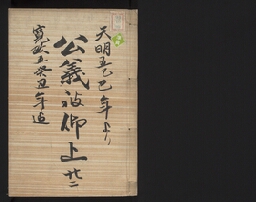 天明五乙巳年より
公義被仰上 廿二
寛政五癸丑年迄